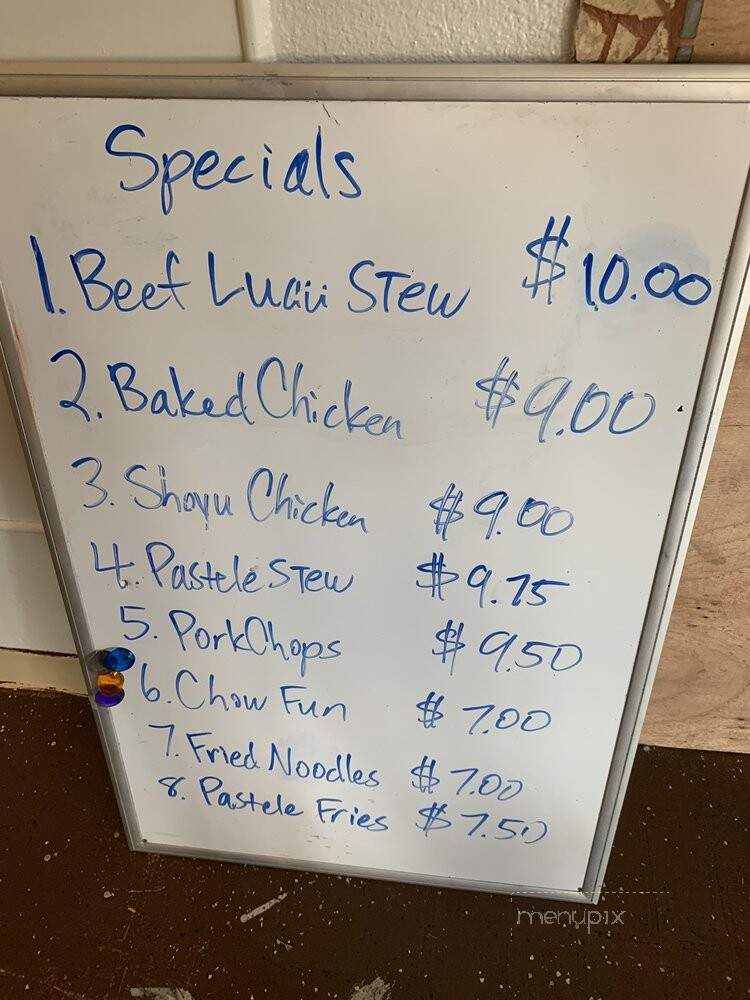 Specials
1. Beef Luau Stew $10.00
2. Baked Chicken $9.00
3. Shoyu Chicken $9.00
4. Pastele Stew $9.75
5. Pork Chops $9.50
6. Chow Fun $7.00
7. Fried Noodles $7.00
8. Pastele Fries $7.50
menupix